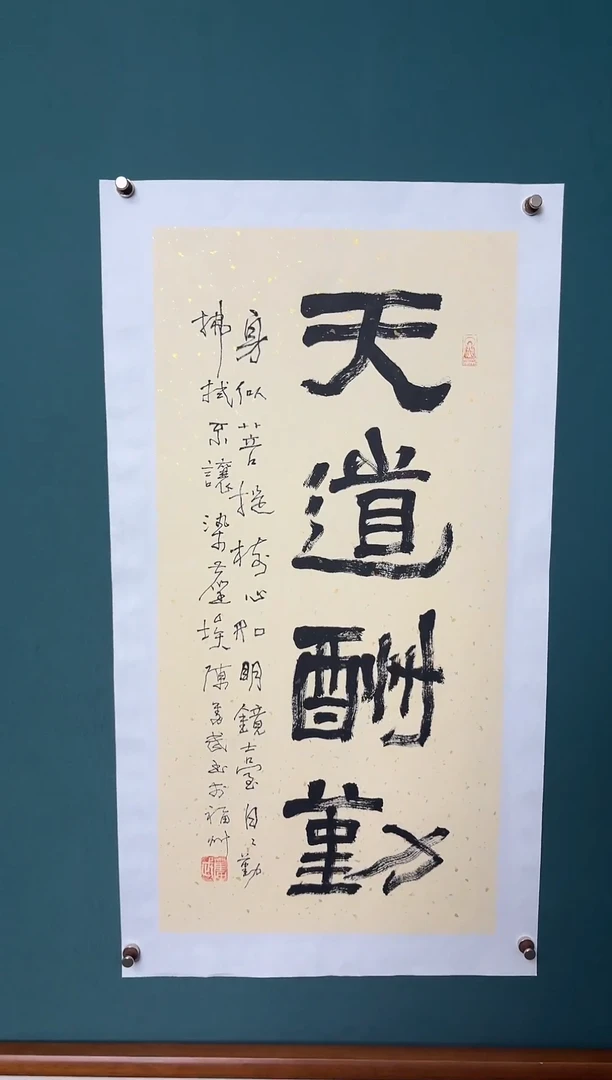 天道酬勤
身似菩提樹心如明鏡臺日〻勤
拂拭不讓染塵埃陳武书於福州